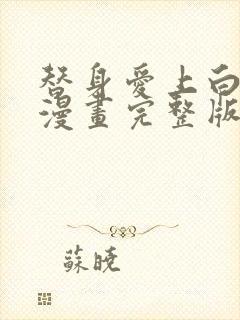 替身愛上白
漫畫完整版
蘇曉